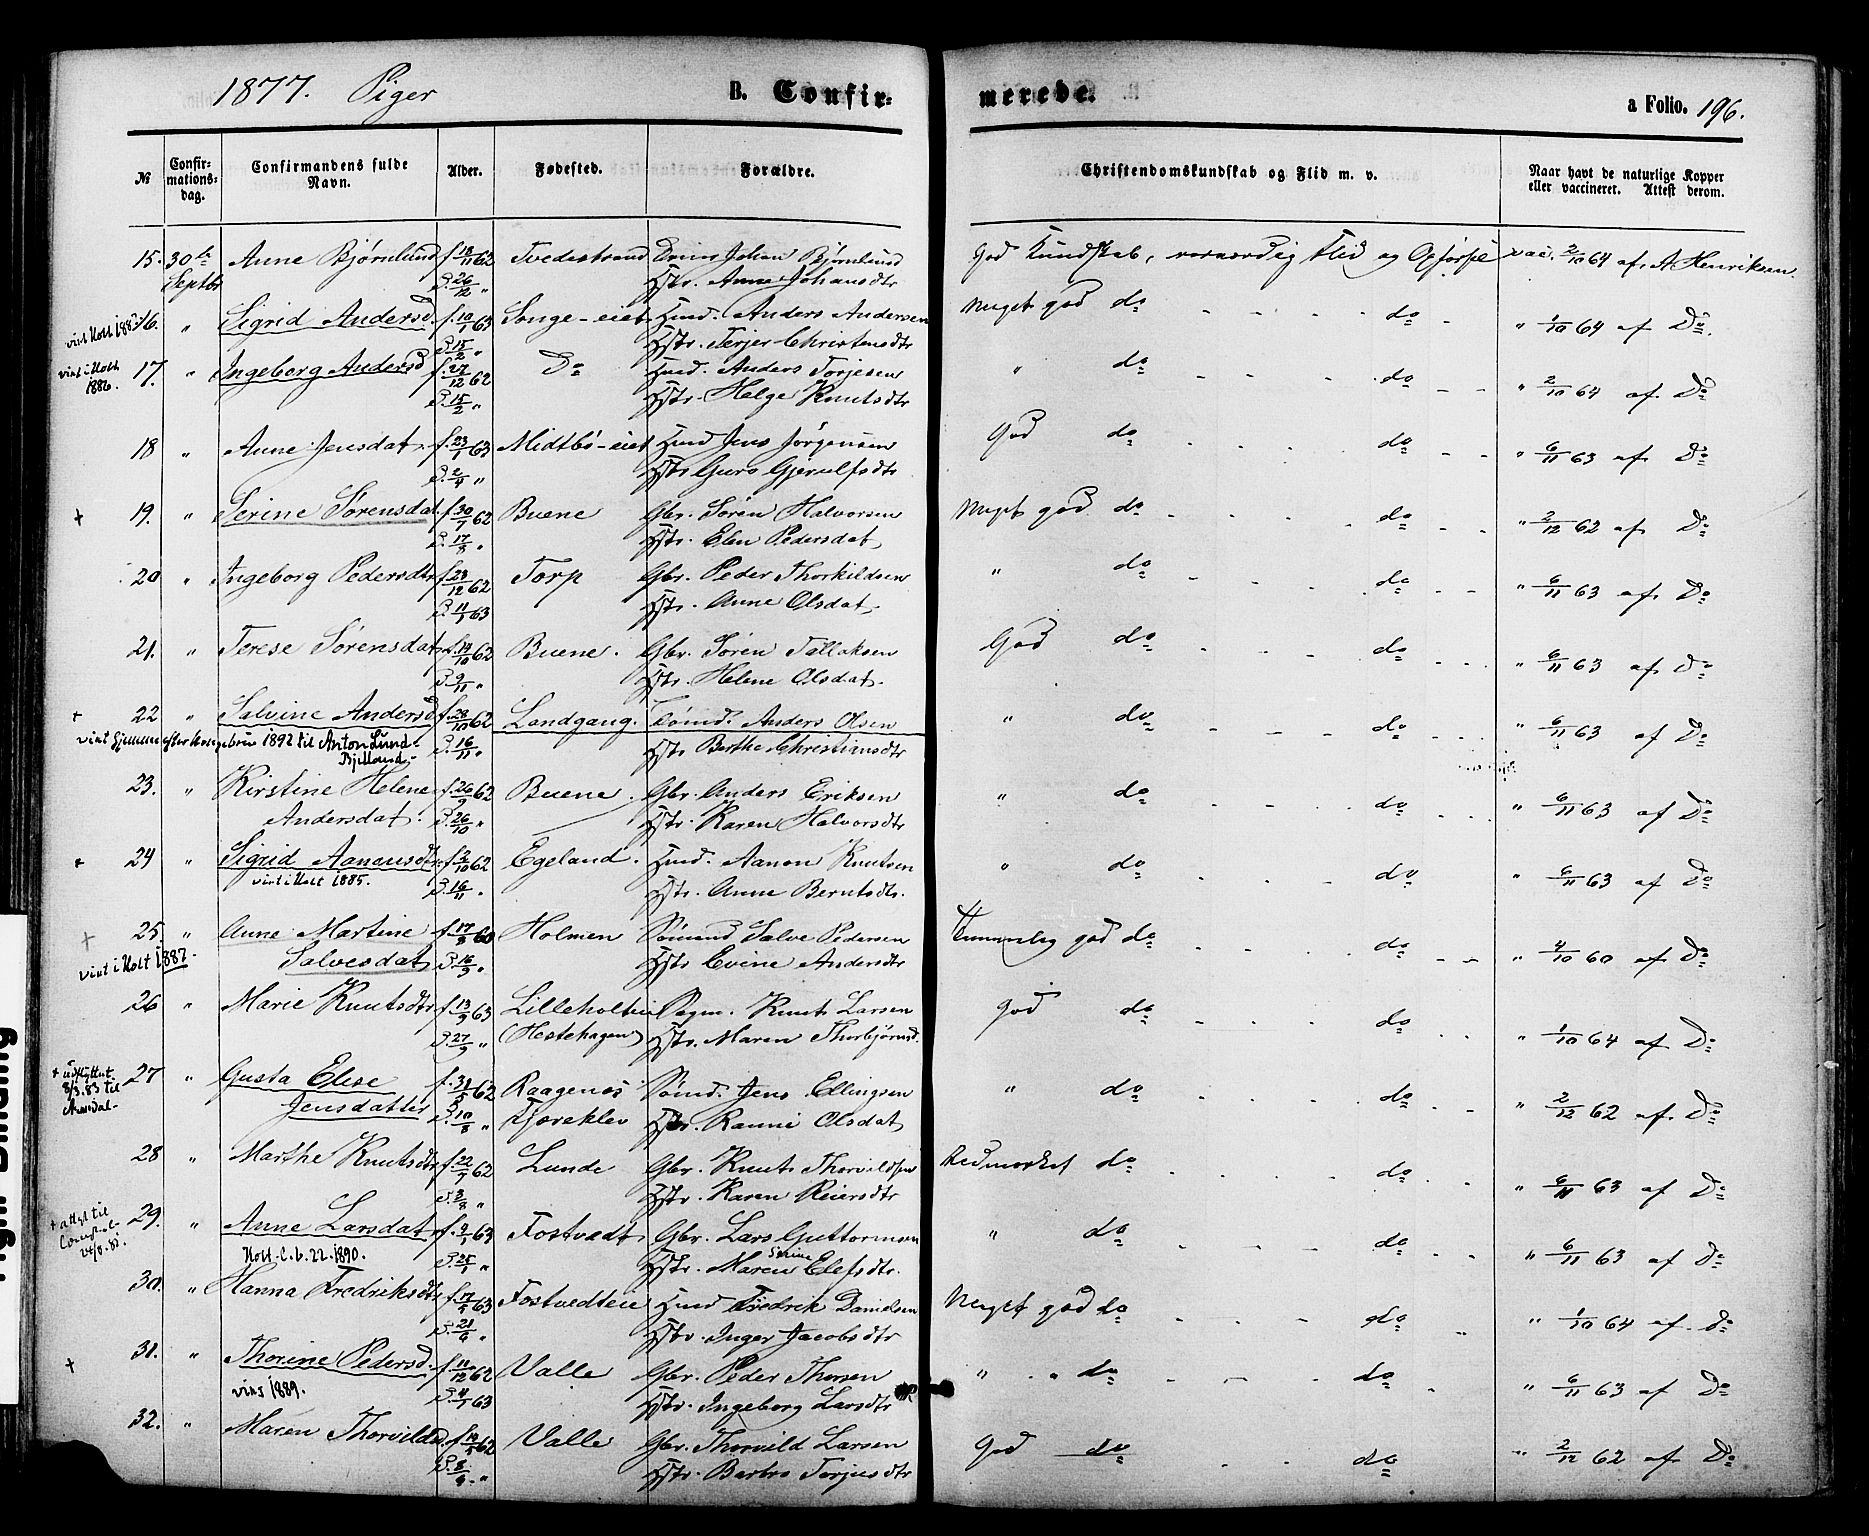 1877. Piger B. Confir- merede. a Folio. 196.
No Confirmationsdag. Confirmandens fulde Navn. Alder. Fødested. Forældre. Christendomskundskab og Flid m. v. Naar havt de naturlige Kopper eller vaccineret. Attest derom.
15. 30te Anne Bjørnlund f. 18/11 62 Tvedestrand Johan Bjørnlund God Kundskab, Flid og Opførsel vac. 2/10 64 af A Henriksen
Septbr D. 26/12 " Hstr. Anne Johansdtr
16. " Sigrid Andersd. f. 10/1 63 Songe-eiet Husd. Anders Andersen Meget god do do " 1/10 64 af Do
viet i Holt 1883 D. 15/2 " Hstr. Terjer Christensdtr
17. " Ingeborg Andersd f. 27/12 62 Do Husd. Anders Torjesen " do do " 2/10 64 af Do
viet i Holt 1886. D. 15/2 " Hstr. Helge Knutsdtr
18 " Anne Jensdat. f. 23/1 63 Midtbö-eiet Husd Jens Jörgensen God do do " 6/11 63 af Do
D. 2/4 " Hstr Guro Gjerulfsdtr
+ 19. " Serine Sørensdat. f. 30/7 62 Buene Gbr. Søren Halvorsen Meget god do do " 2/12 62 af Do
D. 17/8 " Hstr. Elen Pedersdat.
20 " Ingeborg Pedersdtr f. 23/12 62 Torp Gbr. Peder Thorkildsen " do do " 6/11 63 af Do
D. 11/1 63 Hstr. Anne Olsdat.
21. " Terese Sørensdat f. 14/10 62 Buene. Gbr. Søren Tallaksen God do do " 6/11 63 af Do
D. 9/11 " Hstr. Helene Olsdat.
+ 22 " Salvine Andersd f. 28/10 62 Landgang. Tømd. Anders Olsen " do do " 6/11 63 af Do
viet hjemme efter kongebrev 1892 til Anton Lund Bjelland. D. 16/11 " Hstr Berthe Christiansdtr
23. " Kirstine Helene f. 26/9 62 Buene. Gbr. Anders Eriksen " do do " 6/11 63 af Do
Andersdat. D. 26/10 " Hstr. Karen Halvorsdtr
+ 24 " Sigrid Aanonsdtr f. 2/10 62 Egeland. Husd. Aanon Knutsen " do do " 6/11 63 af Do
viet i Holt 1885. D. 16/11 " Hstr. Anne Berntsdtr.
+ 25. " Anne Martine f. 17/8 60 Holmen Sømand Salve Pedersen Temmelig god do do " 4/10 60 af Do
viet i Holt 1887. Salvesdat D. 16/9 " Hstr Evine Andersdtr
26 " Marie Knutsdtr f. 13/9 63 Lilleholtei Knut Larsen God do do " 1/10 64 af Do
D. 27/9 " (Hestehagen) Hstr. Maren Thorbjörnsd.
27 " Gusta Elise f. 31/5 62 Raagenæs Sømd. Jens Ellingsen " do do " 2/12 62 af Do
+ udflyttet 8/3.83 til Arendal- Jensdatter D. 10/8 " Fjæreklev Hstr. Ranni Olsdat
28 " Marthe Knutsdtr f. 22/7 62 Lunde Gbr. Knut Thorvildsen Udmærket do do " 6/11 63 af Do
D. 3/8 " Hstr. Karen Reiersdtr
29. " Anne Larsdat f. 4/1 63 Fostvedt Gbr. Lars Guttormsen " do do " 6/11 63 af Do
+ attest til Holt-C.b.22.1890. D. 25/1 " Hstr. Maren Serine Elefsdtr.
30. " Hanna Fredriksdtr f. 17/5 63 Fostvedteie Husd Fredrik Danielsen Meget god do do " 1/10 64 af. do
D. 21/6 " Hstr. Inger Jacobsdtr
+ 31. " Thorine Pedersd. f. 11/12 62 Valle Gbr. Peder Thorsen " " do do " 6/11 63 af Do
viet 1889. D. 4/1 63 Hstr. Ingeborg Larsdtr
32. " Maren Thorvildsd. f. 19/5 62 Valle Gbr. Thorvild Larsen God do do " 2/12 62 af Do
D. 8/6 " Hstr. Barbro Torjusdtr